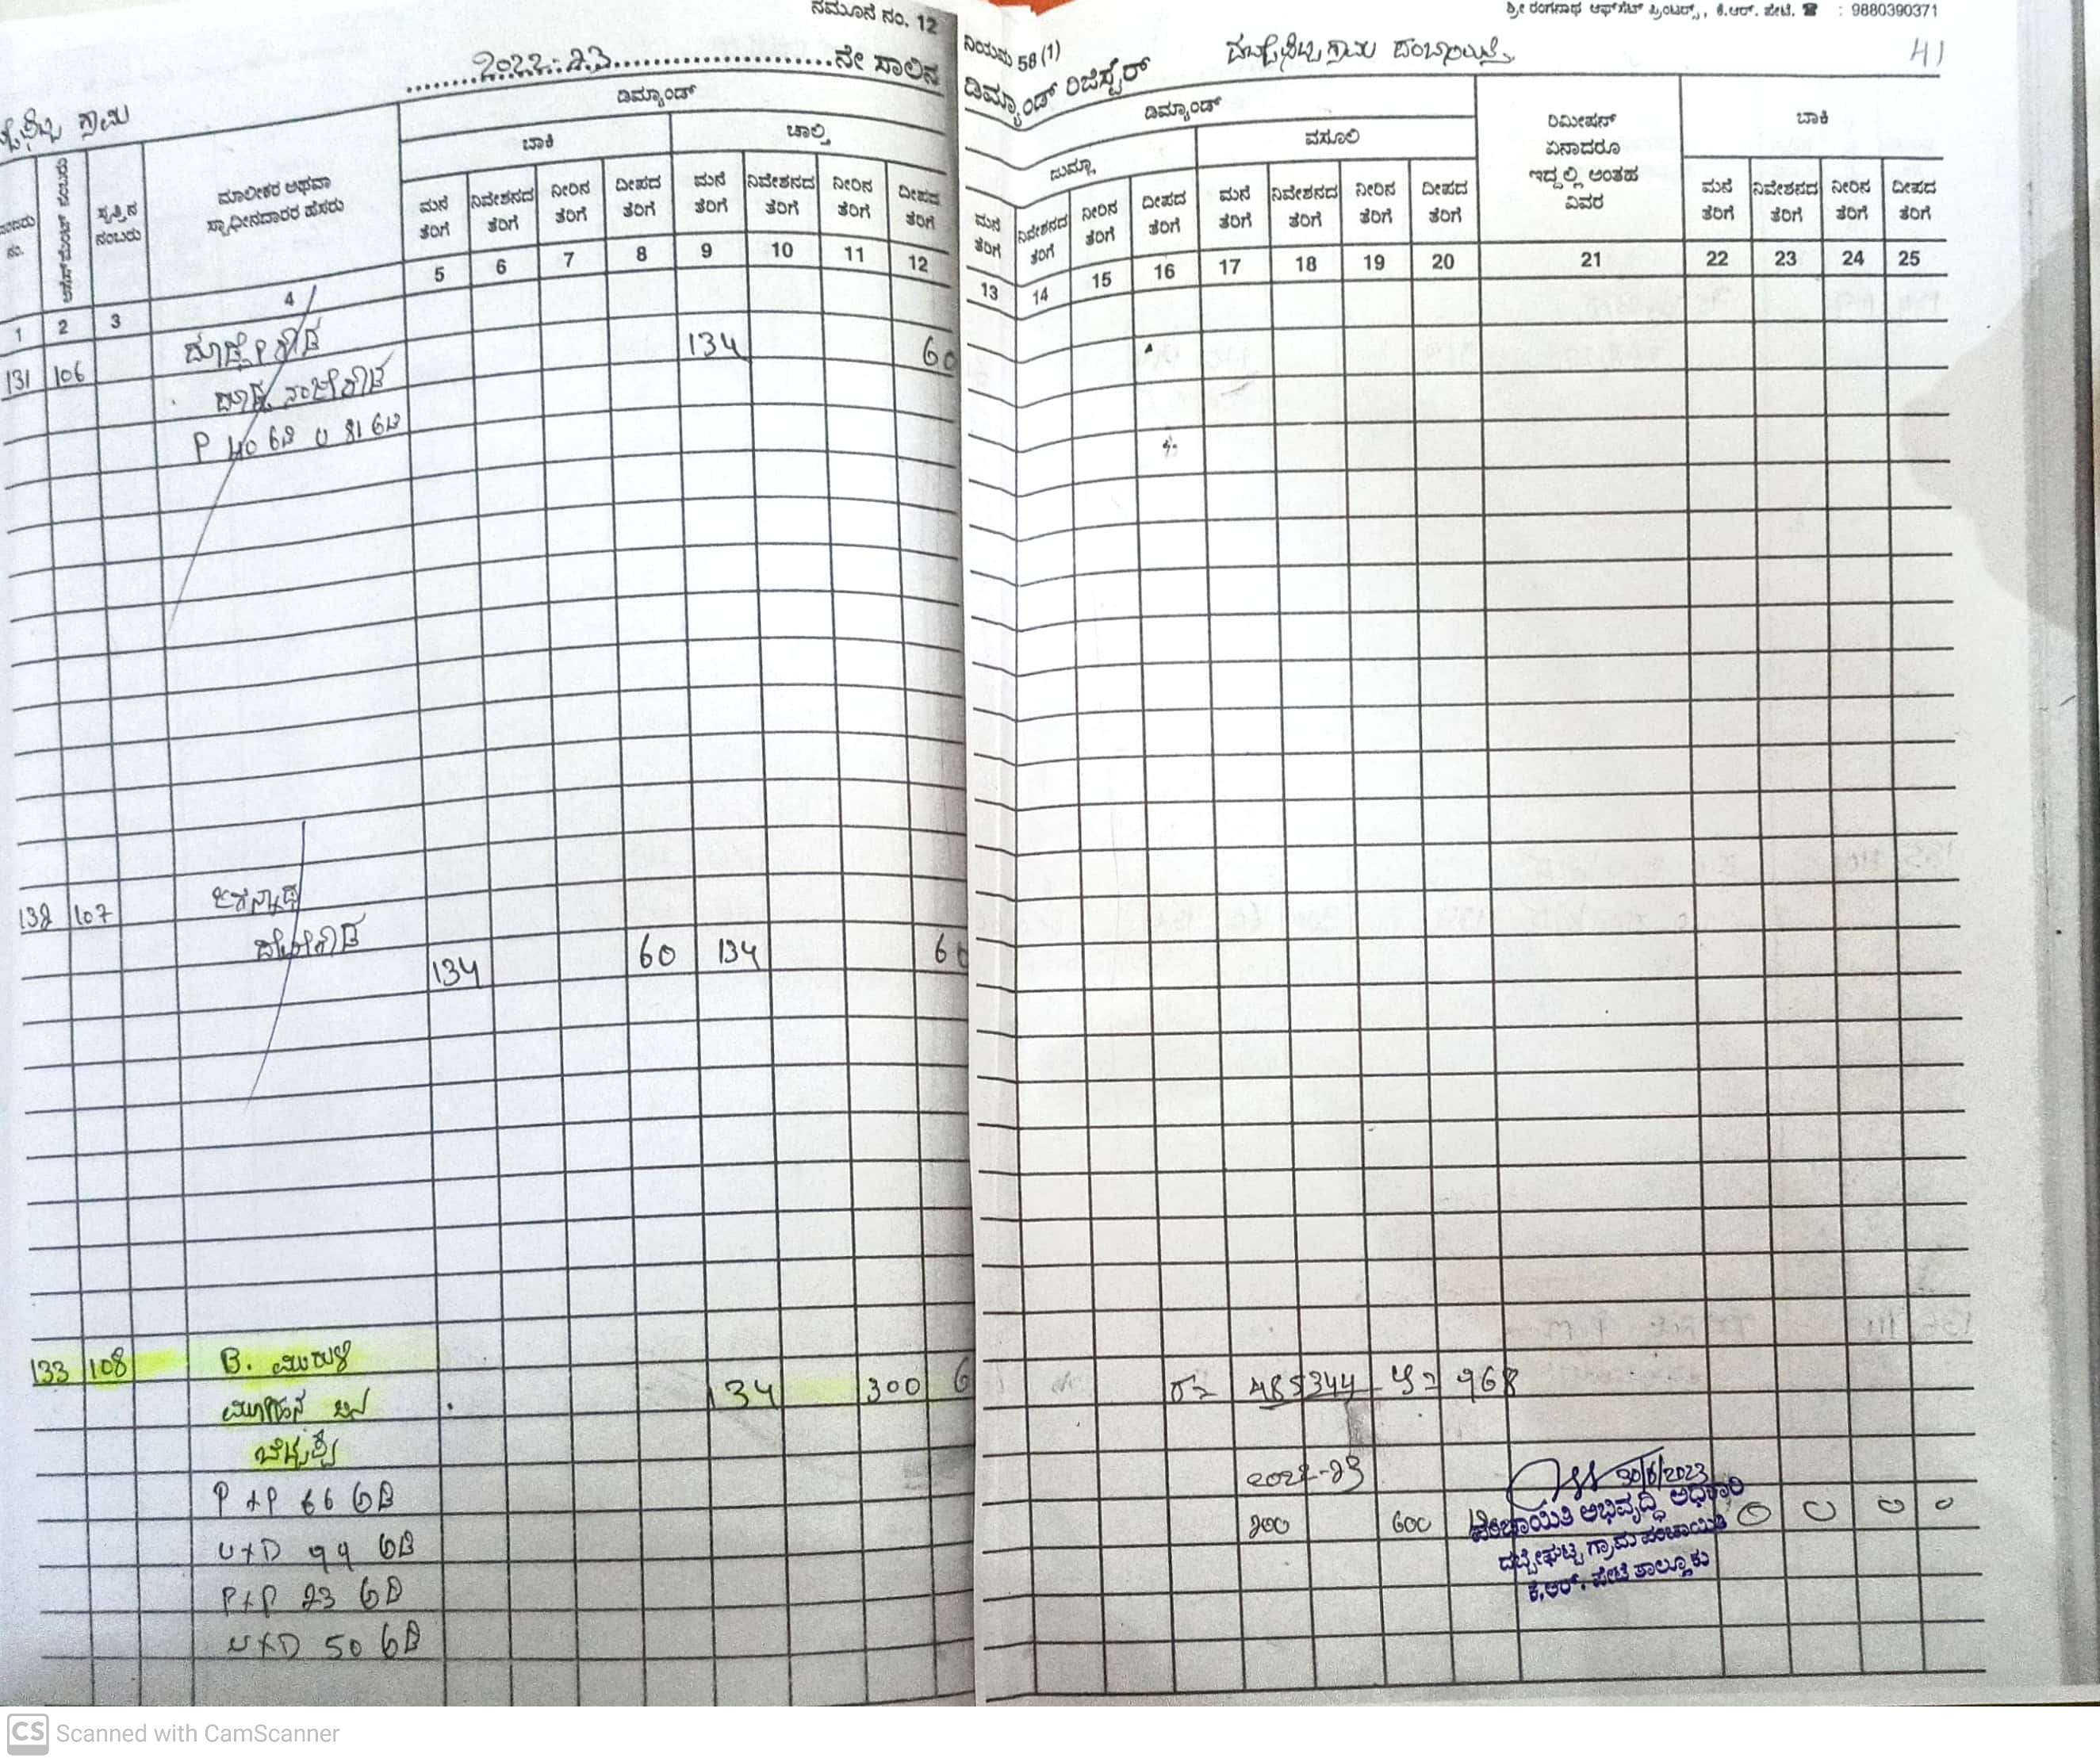 ನಮೂನೆ ನಂ. 12
2022-23 ನೇ ಸಾಲಿನ
ಗ್ರಾಮ
ಡಿಮ್ಯಾಂಡ್
ಬಾಕಿ ಚಾಲ್ತಿ
ನಂ. ಅಸೆಸ್‌ಮೆಂಟ್ ನಂಬರು ಸ್ವತ್ತಿನ ನಂಬರು ಮಾಲೀಕರ ಅಥವಾ ಸ್ವಾಧೀನದಾರರ ಹೆಸರು ಮನೆ ತೆರಿಗೆ ನಿವೇಶನದ ತೆರಿಗೆ ನೀರಿನ ತೆರಿಗೆ ದೀಪದ ತೆರಿಗೆ ಮನೆ ತೆರಿಗೆ ನಿವೇಶನದ ತೆರಿಗೆ ನೀರಿನ ತೆರಿಗೆ ದೀಪದ ತೆರಿಗೆ
1 2 3 4 5 6 7 8 9 10 11 12
131 106 134 60
138 107
134 60 134 60
133 108 B. ಮುರುಳಿ
ಮೋಹನ ಬಿನ್ 134 300 6
P x P 66 ಅಡಿ
U x D 99 ಅಡಿ
P x P 23 ಅಡಿ
U x D 50 ಅಡಿ
ಶ್ರೀ ರಂಗನಾಥ ಆಫ್‌ಸೆಟ್ ಪ್ರಿಂಟರ್ಸ್, ಕೆ.ಆರ್. ಪೇಟೆ. ☎ : 9880390371
ನಿಯಮ 58 (1)
ಡಿಮ್ಯಾಂಡ್ ರಿಜಿಸ್ಟರ್
ದಬ್ಬೇಘಟ್ಟ ಗ್ರಾಮ ಪಂಚಾಯಿತಿ
41
ಡಿಮ್ಯಾಂಡ್
ಜುಮ್ಲಾ ವಸೂಲಿ ರಿಮೀಷನ್ ಏನಾದರೂ ಇದ್ದಲ್ಲಿ ಅಂತಹ ವಿವರ ಬಾಕಿ
ಮನೆ ತೆರಿಗೆ ನಿವೇಶನದ ತೆರಿಗೆ ನೀರಿನ ತೆರಿಗೆ ದೀಪದ ತೆರಿಗೆ ಮನೆ ತೆರಿಗೆ ನಿವೇಶನದ ತೆರಿಗೆ ನೀರಿನ ತೆರಿಗೆ ದೀಪದ ತೆರಿಗೆ ಮನೆ ತೆರಿಗೆ ನಿವೇಶನದ ತೆರಿಗೆ ನೀರಿನ ತೆರಿಗೆ ದೀಪದ ತೆರಿಗೆ
13 14 15 16 17 18 19 20 21 22 23 24 25
485344 968
2022-23
30/6/2023
200 600 0 0 0 0
ಪಂಚಾಯಿತಿ ಅಭಿವೃದ್ಧಿ ಅಧಿಕಾರಿ
ದಬ್ಬೇಘಟ್ಟ ಗ್ರಾಮ ಪಂಚಾಯಿತಿ
ಕೆ.ಆರ್. ಪೇಟೆ ತಾಲ್ಲೂಕು
CS Scanned with CamScanner